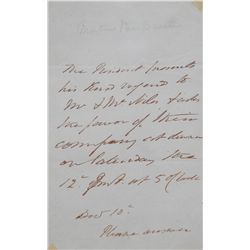 Martin Van Buren
The President presents
his kind regard to
Mr & Mrs Niles & asks
the favor of their
company at dinner
on Saturday the
12th Inst at 5 o'clock
Decr 10th
Please answer